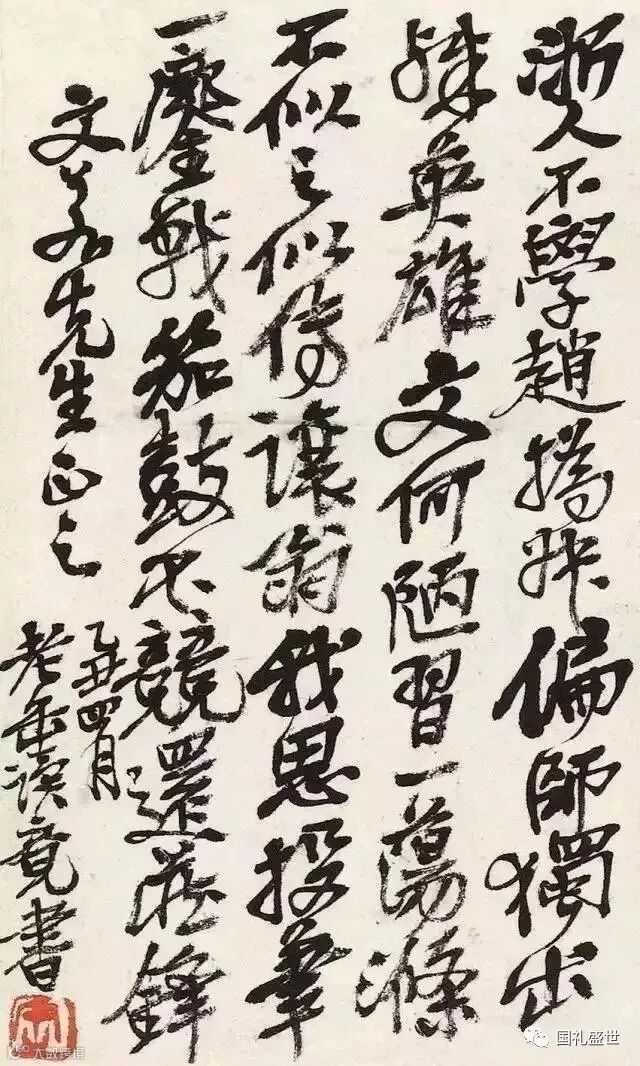 浙人不學趙撝叔偏師獨出
殊英雄文何陋習一蕩滌
不似之似傳讓翁我思投筆
一鏖戰笳鼓不競還藏鋒
文先生正之
乙丑四月
老竟書
大数跨境
国礼盛世